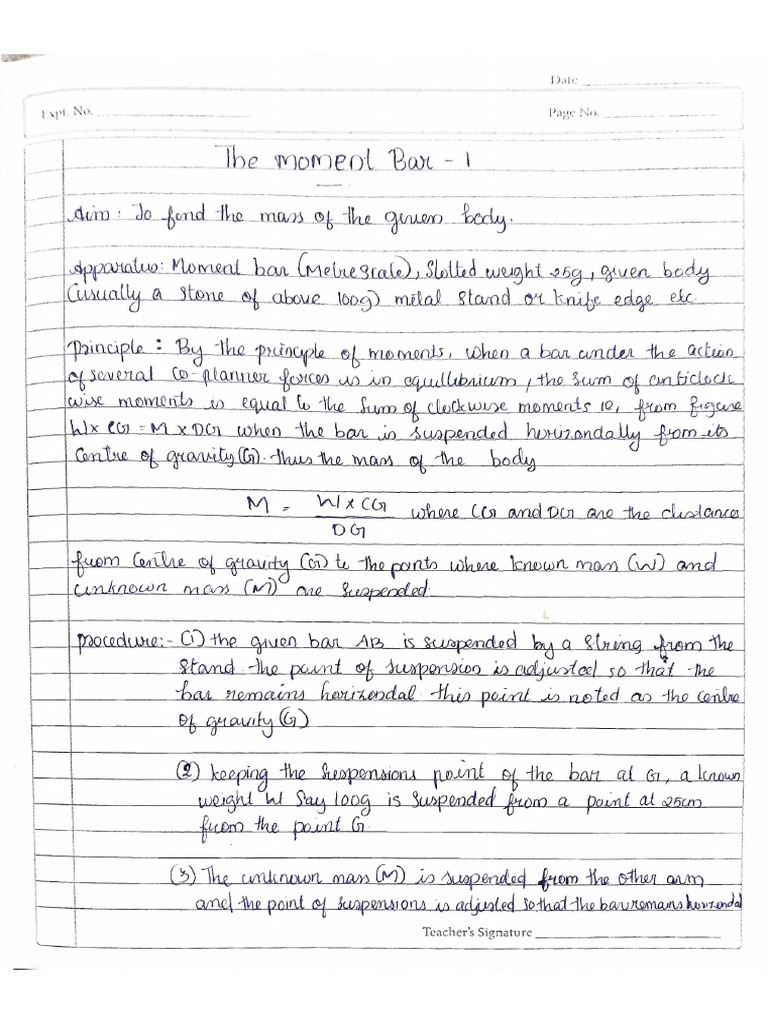 Date
Expt. No.
Page No.
The moment Bar - 1
Aim: To find the mass of the given body.
Apparatus: Moment bar (Metre scale), Slotted weight 25g, given body
(usually a stone of above 100g) metal stand or knife edge etc.
Principle : By the principle of moments, when a bar under the action
of several co-planner forces is in equillibrium, the sum of anticlock
wise moments is equal to the sum of clockwise moments ie, from figure
W x CG = M x DG when the bar is suspended horizondally from its
Centre of gravity (G). thus the mass of the body
M = W x CG / DG where CG and DG are the distances
from Centre of gravity (G) to the points where known mass (W) and
unknown mass (M) are suspended.
procedure:- (1) the given bar AB is suspended by a string from the
stand. the point of suspension is adjusted so that the
bar remains horizondal this point is noted as the centre
of gravity (G)
(2) keeping the suspensions point of the bar at G, a known
weight W say 100g is suspended from a point at 25cm
from the point G.
(3) The unknown mass (M) is suspended from the other arm
and the point of suspensions is adjusted so that the bar remains horizondal
Teacher's Signature